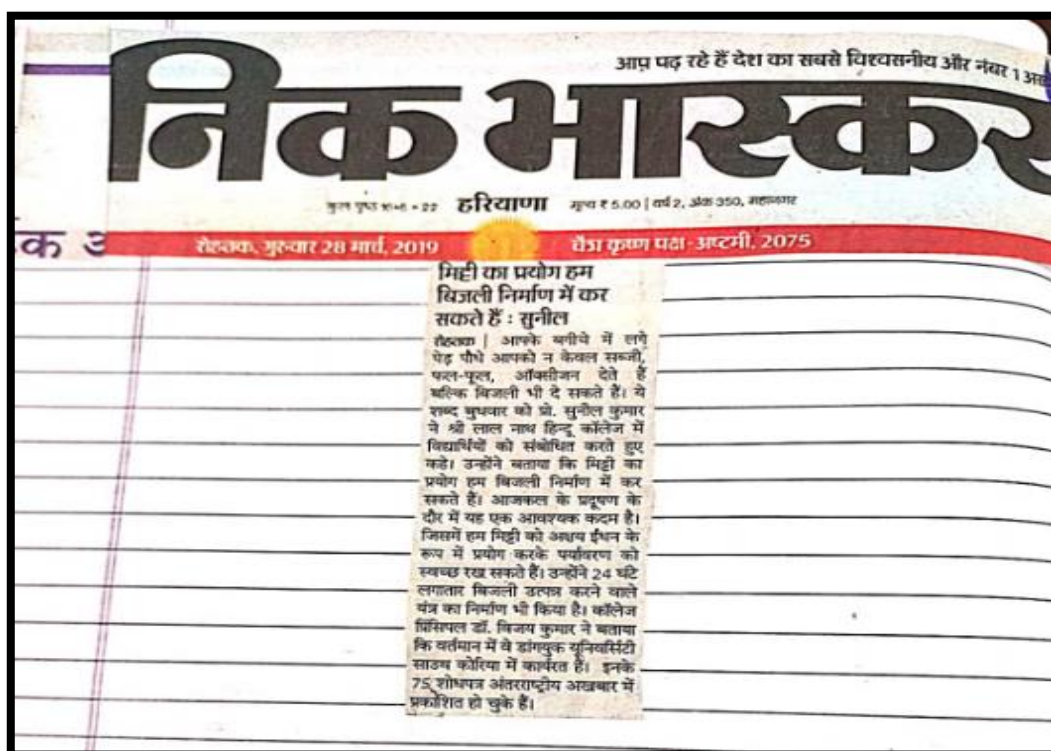 आप पढ़ रहे हैं देश का सबसे विश्वसनीय और नंबर 1
निक भास्कर
कुल पृष्ठ = 22 हरियाणा मूल्य ₹ 5.00 | वर्ष 2, अंक 350, महानगर
रोहतक, गुरुवार 28 मार्च, 2019 चैत्र कृष्ण पक्ष-अष्टमी, 2075
मिट्टी का प्रयोग हम
बिजली निर्माण में कर
सकते हैं : सुनील
रोहतक | आपके बगीचे में लगे
पेड़ पौधे आपको न केवल सब्जी,
फल-फूल, ऑक्सीजन देते हैं
बल्कि बिजली भी दे सकते हैं। ये
शब्द बुधवार को प्रो. सुनील कुमार
ने श्री लाल नाथ हिन्दू कॉलेज में
विद्यार्थियों को संबोधित करते हुए
कहे। उन्होंने बताया कि मिट्टी का
प्रयोग हम बिजली निर्माण में कर
सकते हैं। आजकल के प्रदूषण के
दौर में यह एक आवश्यक कदम है।
जिसमें हम मिट्टी को अक्षय ईंधन के
रूप में प्रयोग करके पर्यावरण को
स्वच्छ रख सकते हैं। उन्होंने 24 घंटे
लगातार बिजली उत्पन्न करने वाले
यंत्र का निर्माण भी किया है। कॉलेज
प्रिंसिपल डॉ. विजय कुमार ने बताया
कि वर्तमान में वे डांगयुक यूनिवर्सिटी
साउथ कोरिया में कार्यरत हैं। इनके
75 शोधपत्र अंतरराष्ट्रीय अखबार में
प्रकाशित हो चुके हैं।